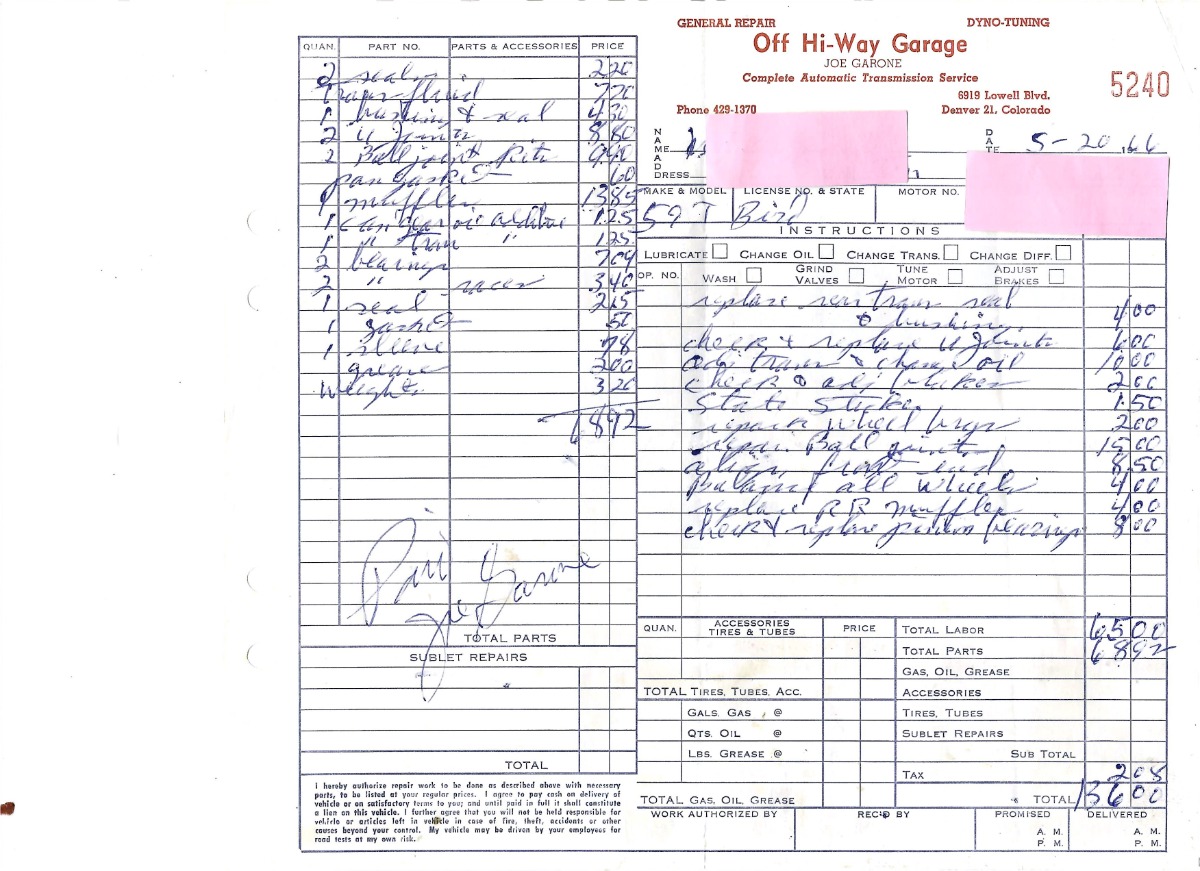 GENERAL REPAIR DYNO-TUNING
Off Hi-Way Garage
JOE GARONE
Complete Automatic Transmission Service
6919 Lowell Blvd.
Phone 429-1370 Denver 21, Colorado
5240
NAME
ADDRESS
DATE 5-20 66
MAKE & MODEL LICENSE NO. & STATE MOTOR NO.
59 T Bird
QUAN. PART NO. PARTS & ACCESSORIES PRICE
2 seals 2 20
trans fluid 7 20
1 bushing & seal 4 30
2 U Joints 8 80
2 Ball joint Kits 9 90
pan gasket 60
1 muffler 13 85
1 can gear oil additive 1.25
1 " tran " 1.25
2 bearings 7 04
2 " races 3 40
1 seal 2 15
1 gasket 50
1 sleeve 78
grease 2 00
Weights 3 20
68 92
Paid
Joe Garone
TOTAL PARTS
SUBLET REPAIRS
TOTAL
I hereby authorize repair work to be done as described above with necessary
parts, to be listed at your regular prices. I agree to pay cash on delivery of
vehicle or on satisfactory terms to you; and until paid in full it shall constitute
a lien on this vehicle. I further agree that you will not be held responsible for
vehicle or articles left in vehicle in case of fire, theft, accidents or other
causes beyond your control. My vehicle may be driven by your employees for
road tests at my own risk.
INSTRUCTIONS
LUBRICATE CHANGE OIL CHANGE TRANS. CHANGE DIFF.
OP. NO. WASH GRIND VALVES TUNE MOTOR ADJUST BRAKES
replace rear trans seal
& bushing 4 00
check & replace U Joints 6 00
adj trans & change oil 10 00
check & adj brakes 2 00
State Sticker 1.50
repack wheel brgs 2 00
repair Ball joints 15 00
align front end 8.50
Balance all Wheels 4 00
replace RR muffler 4 00
check & replace pinion bearings 8 00
QUAN. ACCESSORIES TIRES & TUBES PRICE
TOTAL TIRES, TUBES, ACC.
GALS. GAS @
QTS. OIL @
LBS. GREASE @
TOTAL GAS, OIL, GREASE
TOTAL LABOR 65 00
TOTAL PARTS 68 92
GAS, OIL, GREASE
ACCESSORIES
TIRES, TUBES
SUBLET REPAIRS
SUB TOTAL
TAX 2 08
TOTAL 136 00
WORK AUTHORIZED BY REC'D BY PROMISED DELIVERED
A. M. A. M.
P. M. P. M.